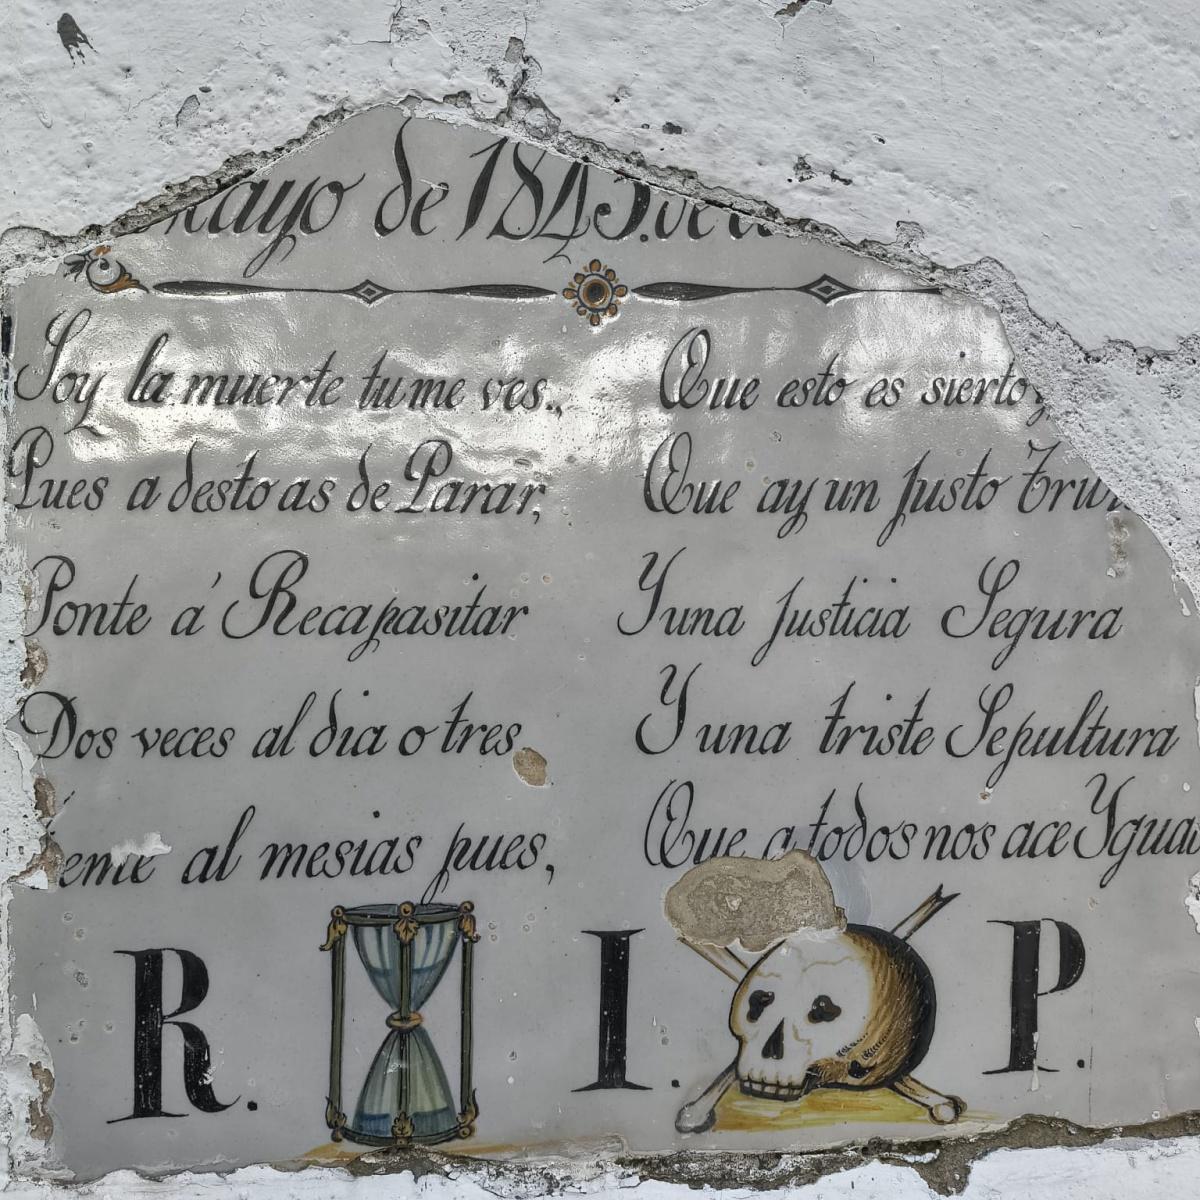 Mayo de 1843.
Soy la muerte tu me ves.,
Pues a desto as de Parar,
Ponte á Recapasitar
Dos veces al dia o tres
al mesias pues,
Que esto es sierto,
Que ay un justo
Y una justicia Segura
Y una triste Sepultura
Que a todos nos ace Ygual
R. I. P.